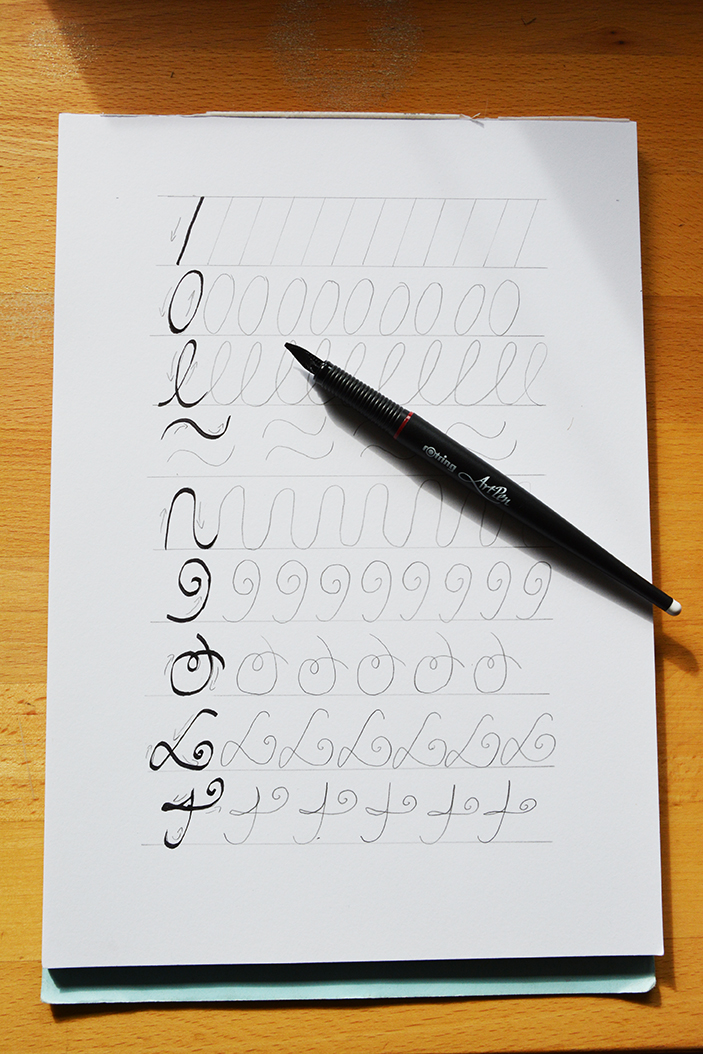 rotring ArtPen